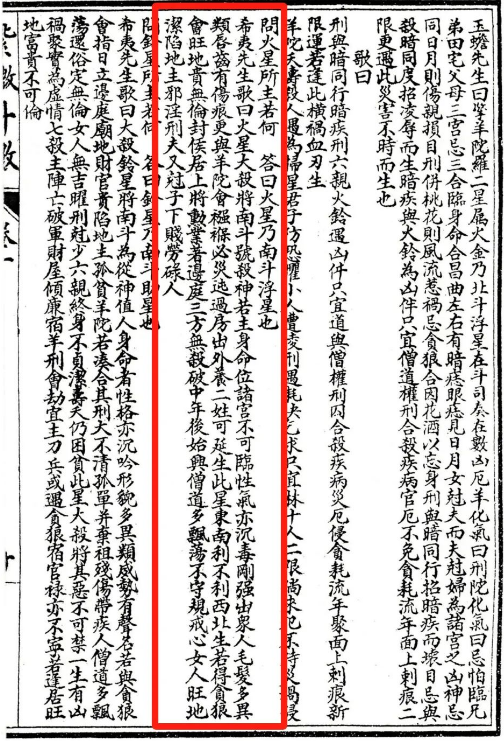 玉蟾先生曰擎羊陀羅二星屬火金乃北斗浮星在斗司奏在數凶厄羊化氣曰刑陀化氣曰忌怕臨兄
弟田宅父母三宮忌三合臨身命合昌曲左右有暗痣眼痣見日月女尅夫而夫尅婦為諸宮之凶神忌
同日月則傷親損目刑併桃花則風流惹禍忌貪狼合因花酒以忘身刑與暗同行招暗疾而壞目忌與
殺暗同度招凌辱而生暗疾與火鈴為凶伴只宜僧道權刑合殺疾病官厄不免貪耗流年面上刺痕二
限更遇此災害不時而生也
歌曰
刑與暗同行暗疾刑六親火鈴遇凶伴只宜道與僧權刑囚合殺疾病災厄侵貪耗流年聚面上刺痕新
限運若逢此橫禍血刃生
羊陀天壽殺人遇為掃星君子防恐懼小人遭凌刑遇耗決乞求只宜林十人二限倘來犯不時災禍侵
問火星所主若何 答曰火星乃南斗浮星也
希夷先生歌曰火星大殺將南斗號殺神若主身命位諸宮不可臨性氣亦沉毒剛强出衆人毛髮多異
類唇齒有傷痕更與羊陀會襁褓必災迍過房出外養二姓可延生此星東南利不利西北生若得貪狼
會旺地貴無倫封侯居上將勳業著邊庭三方無殺破中年後始興僧道多飄蕩不守規戒心女人旺地
潔陷地主邪淫刑夫又尅子下賤勞碌人
問鈴星所主若何 答曰鈴星乃南斗助星也
希夷先生歌曰大殺鈴星將南斗為從神值人身命者性格亦沉吟形貌多異類威勢有聲名若與貪狼
會指日立邊庭廟地財官貴陷地主孤貧羊陀若湊合其刑大不清孤單并棄祖殘傷帶疾人僧道多飄
蕩還俗定無倫女人無吉曜刑尅少六親終身不貞潔壽夭仍困貧此星大殺將其惡不可禁一生有凶
禍聚實為虛情七殺主陣亡破軍財屋傾廉宿羊刑會刧宜主刀兵或遇貪狼宿官祿亦不寧若逢居旺
地富貴不可倫